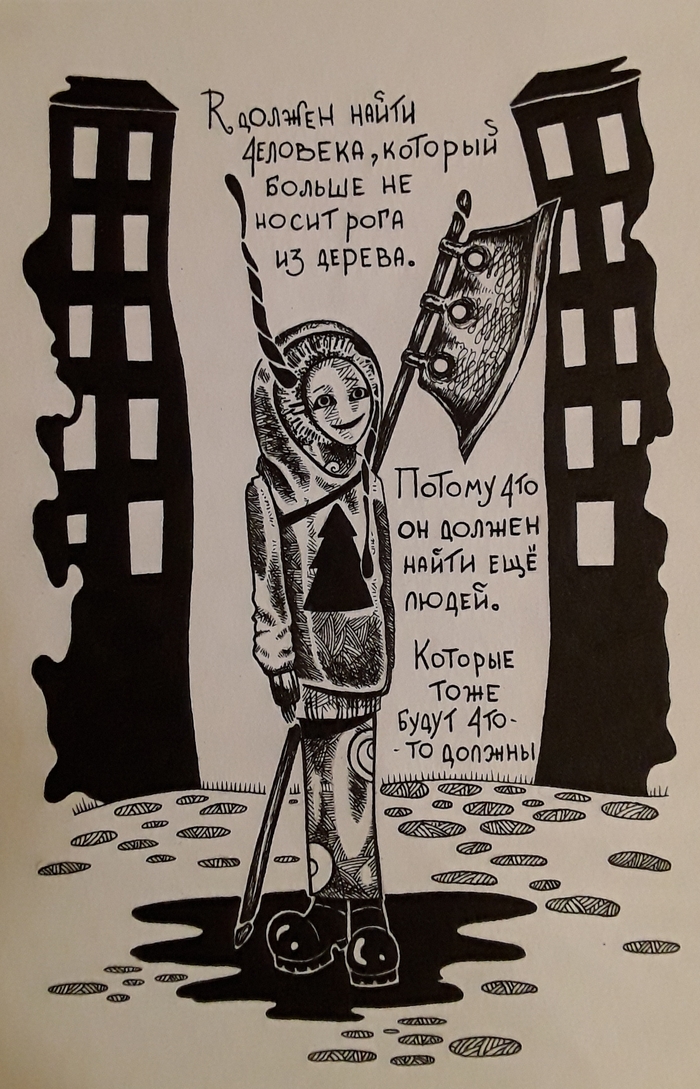 Я должен найти
человека, который
больше не
носит рога
из дерева.
Потому что
он должен
найти ещё
людей.
Которые
тоже
будут что-
-то должны